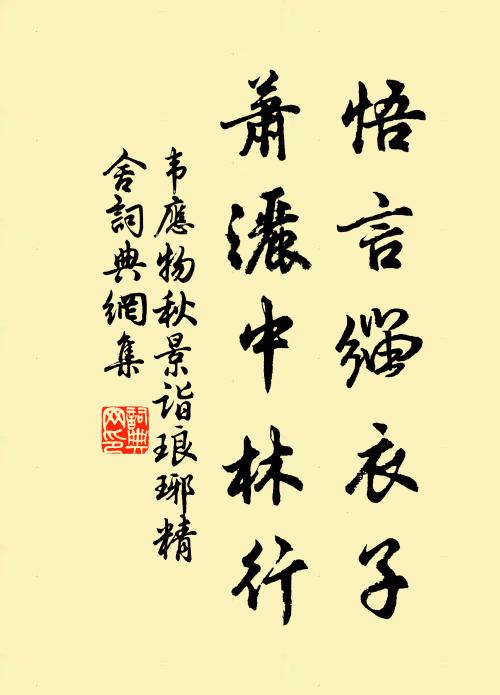 悟言緇衣子
蕭灑中林行
韦應物秋景詣琅琊精
舍詞典網集
詞典
网印